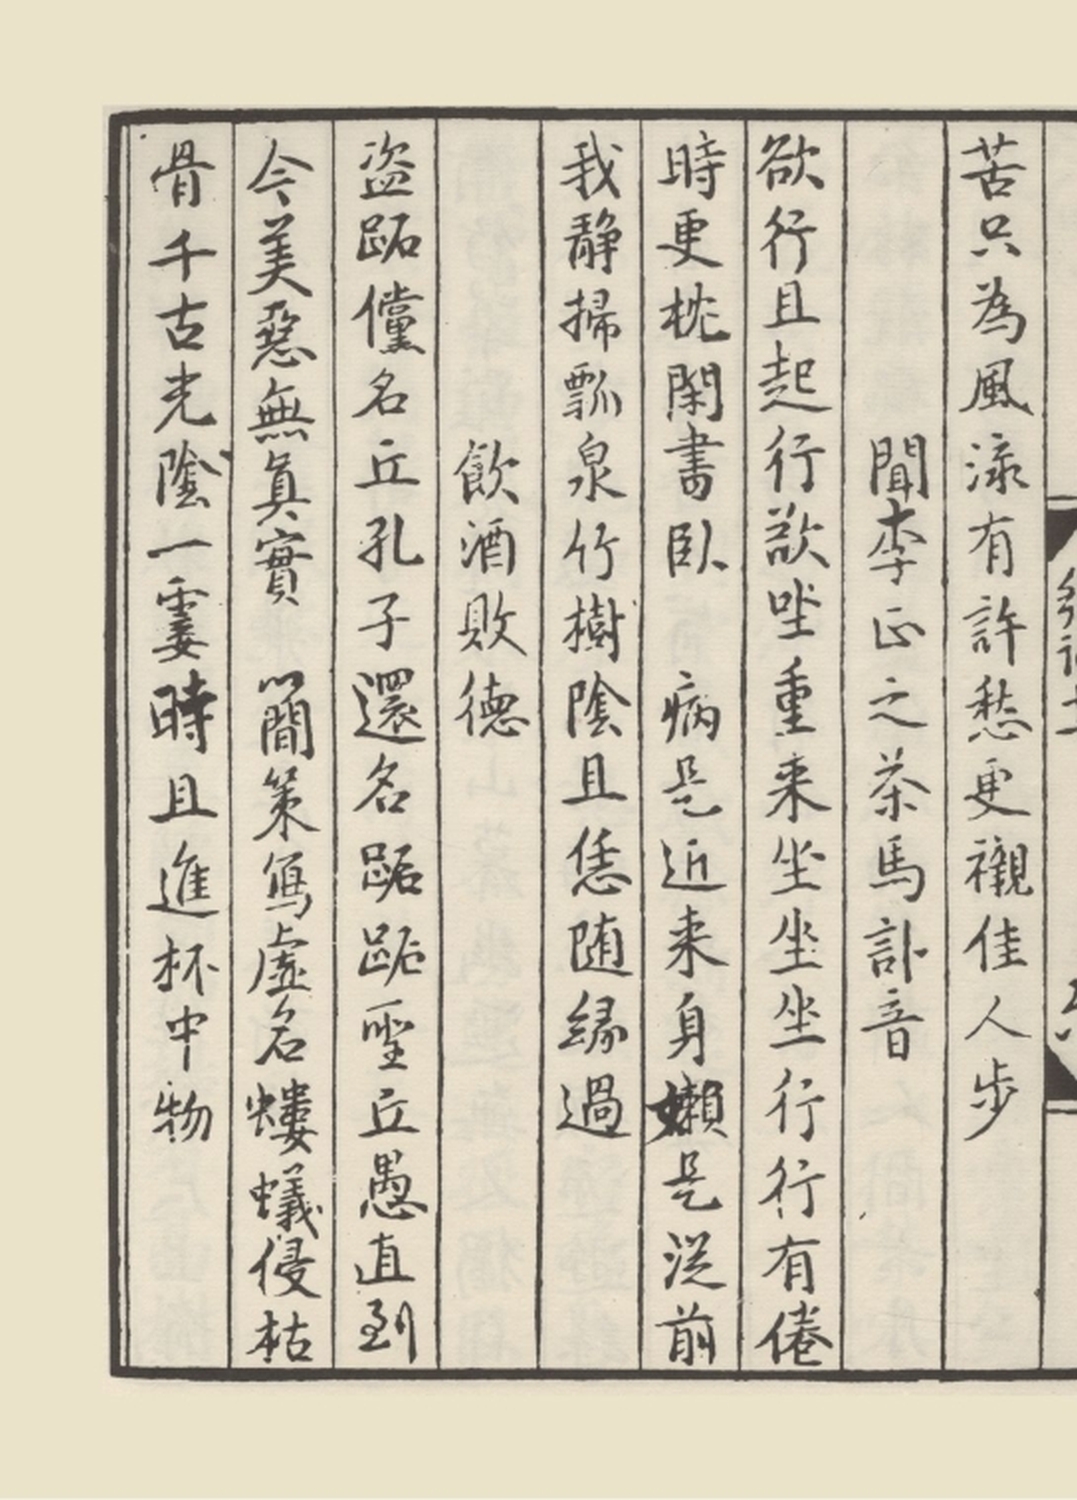 苦只為風流有許愁更襯佳人步
聞李正之茶馬訃音
欲行且起行欲坐重来坐坐坐行行有倦
時更枕閑書卧　病是近来身嬾是従前
我静掃瓢泉竹樹陰且恁随縁過
飲酒敗德
盗跖儻名丘孔子還名跖跖聖丘愚直到
今美惡無眞實　簡策寫虛名螻蟻侵枯
骨千古光陰一霎時且進杯中物